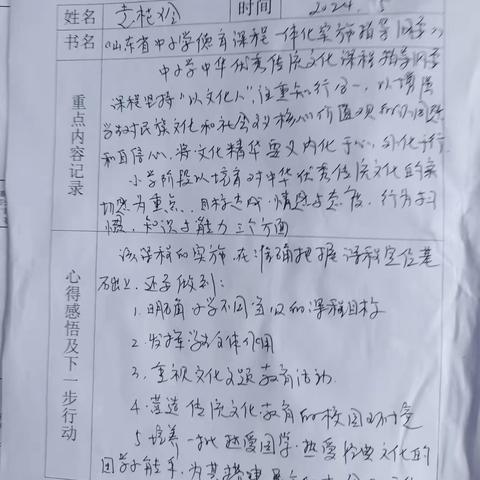 姓名 时间 2024.5
书名 《山东省中小学德育课程一体化实施指导纲要》
中小学中华优秀传统文化课程指导纲要
重点内容记录
课程坚持“以文化人”,注重知行合一,以增强
学生对民族文化和社会主义核心价值观的认同感
和自信心,将文化精华要义内化于心,外化于行
小学阶段以培育对中华优秀传统文化的亲
切感为重点,目标达成:情感与态度,行为与习
惯,知识与能力三个方面
心得感悟及下一步行动
该课程的实施,在准确把握课程定位基
础上,还需做到:
1.明确小学不同学段的课程目标
2.发挥学生主体作用
3.重视文化主题教育活动.
4.营造传统文化教育的校园环境
5.培养一批热爱国学、热爱经典文化的
国学小能手,为其搭建